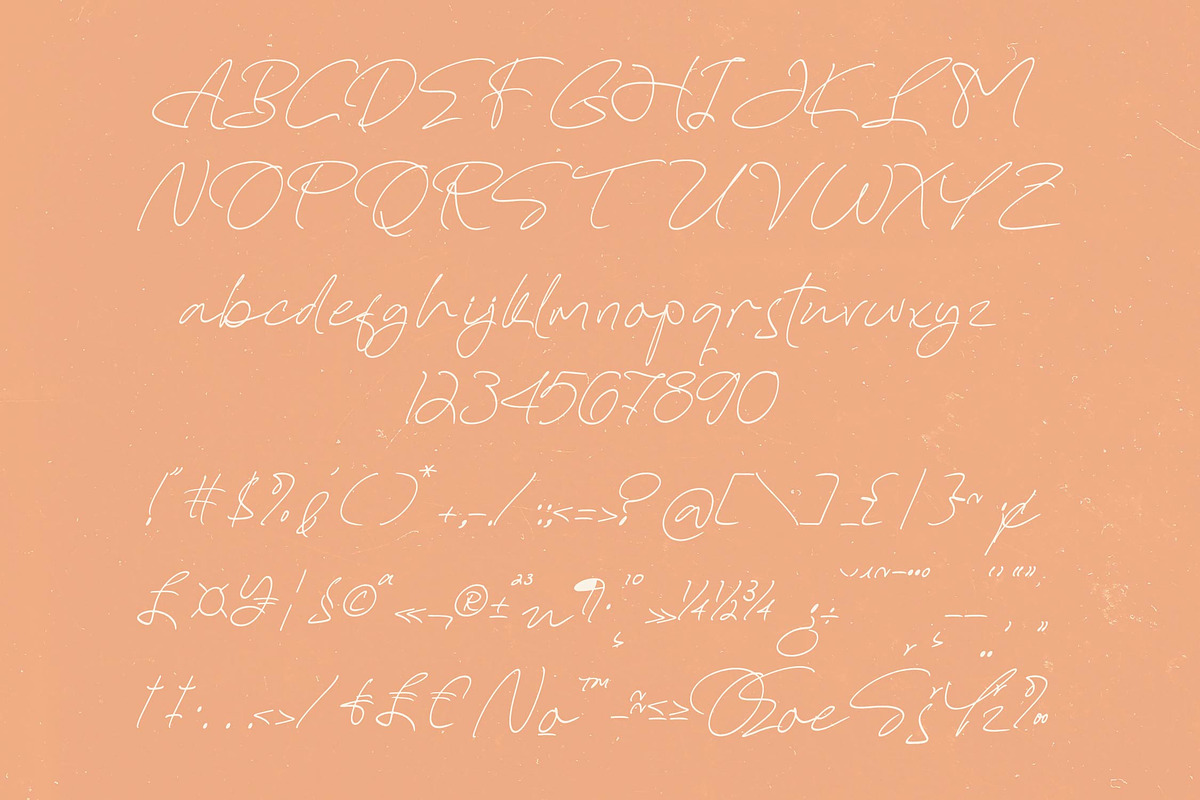 ABCDEFGHIJKLM
NOPQRSTUVWXYZ
abcdefghijklmnopqrstuvwxyz
1234567890
!"#$%&'()*+,-./:;<=>?@[\]_{|}~¡¢
£¤¥¦§©ª«¬®±²³µ¶·¸¹º»¼½¾¿÷
†‡•...‹›⁄₣₤€№™−≈≤≥ŒœŠšŸž‰